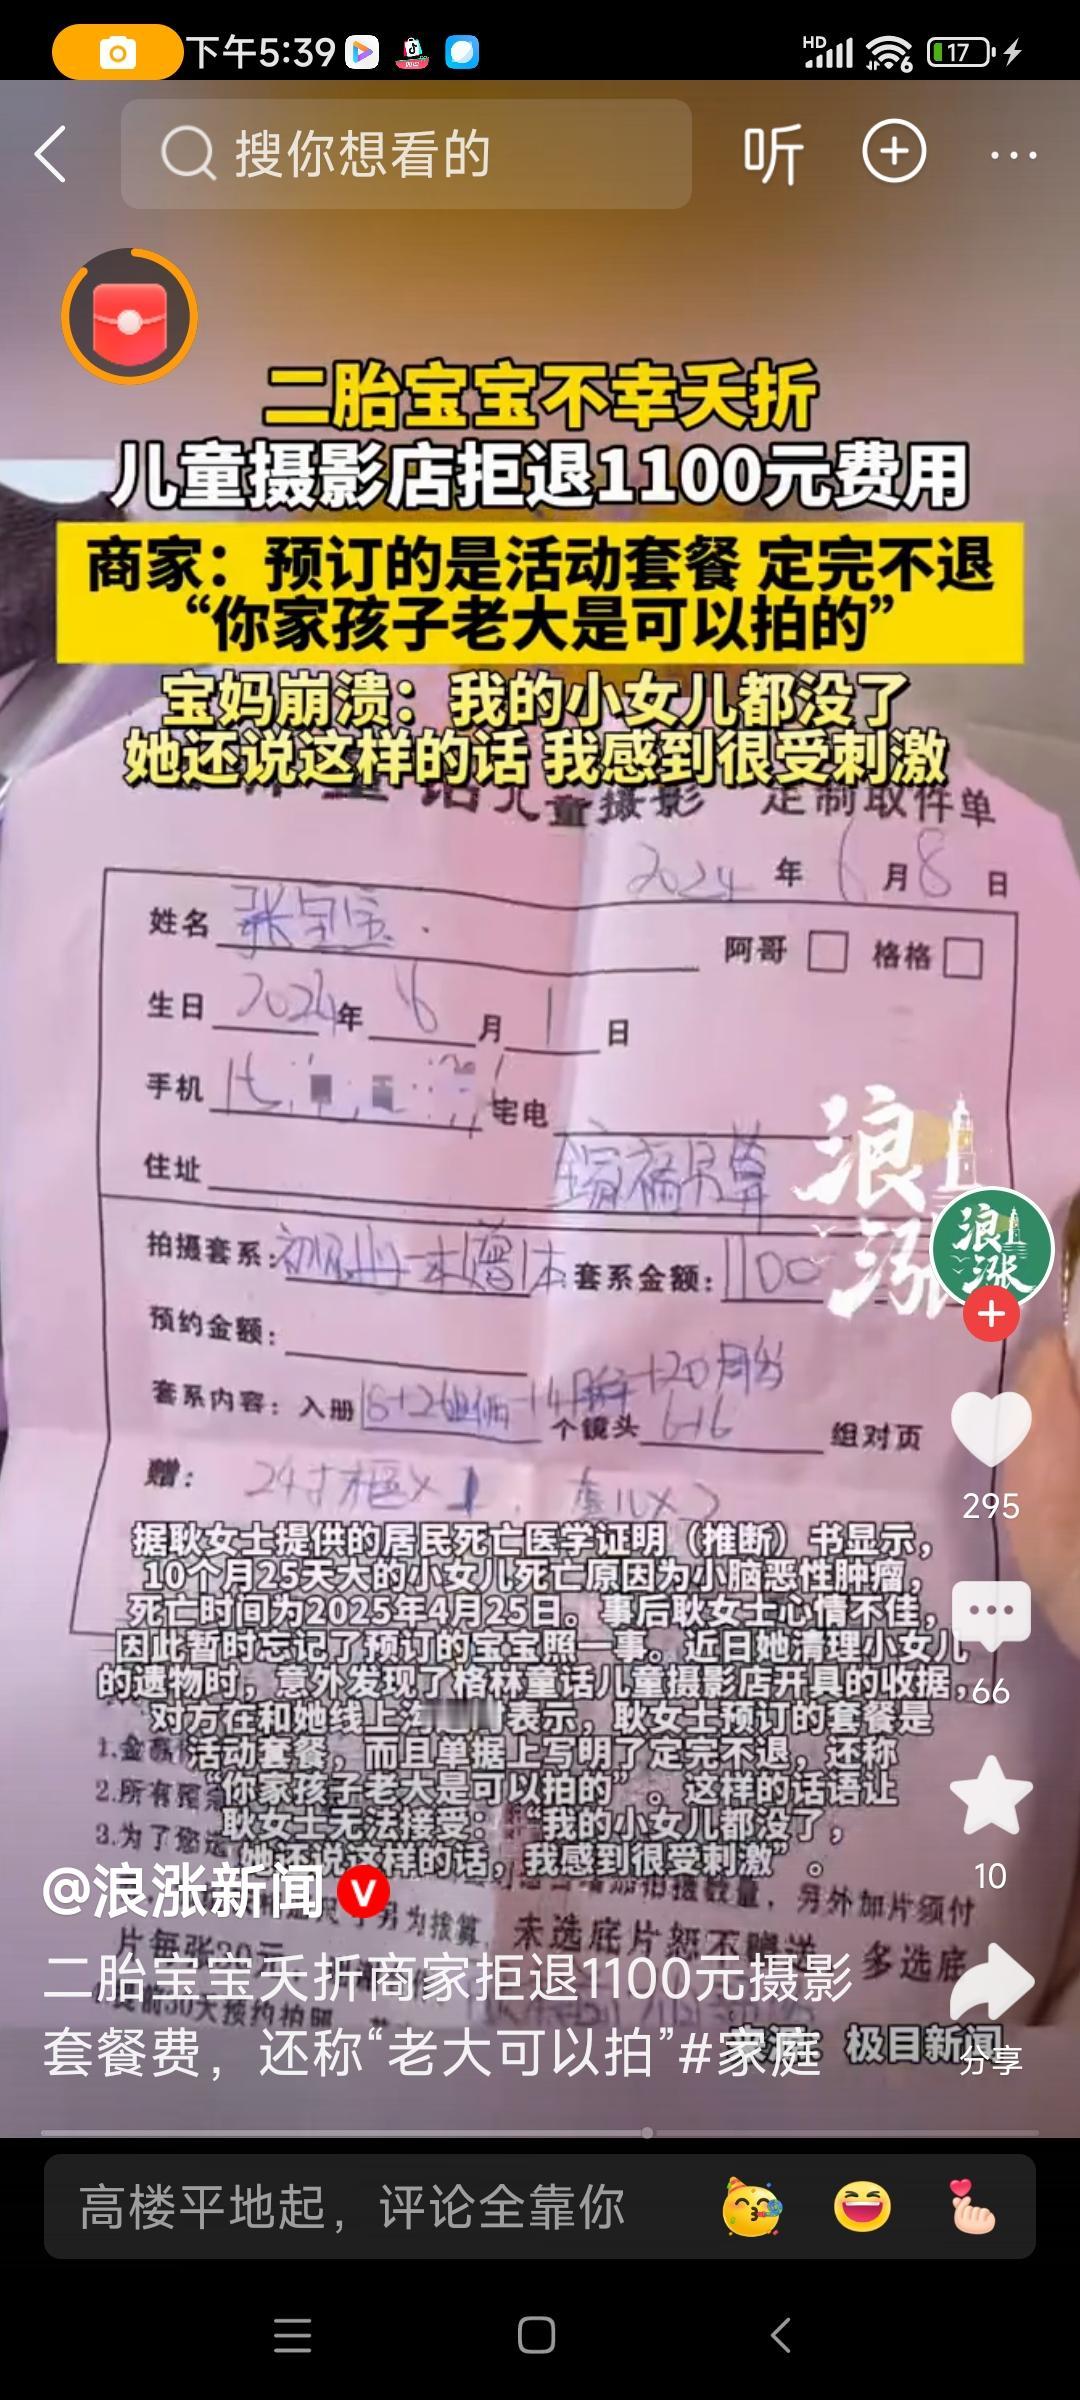 下午5:39
HD
6
17
搜你想看的
听
二胎宝宝不幸夭折
儿童摄影店拒退1100元费用
商家：预订的是活动套餐 定完不退
“你家孩子老大是可以拍的”
宝妈崩溃：我的小女儿都没了
她还说这样的话 我感到很受刺激
童话儿童摄影 定制取件单
2024年6月8日
姓名 张宝宝
阿哥 格格
生日 2024年6月1日
手机
宅电
住址
全家福另算
浪
涨
浪
涨
拍摄套系：
套系金额：1100
预约金额：
套系内容：入册
个镜头
组对页
赠：24寸框×1
295
据耿女士提供的居民死亡医学证明（推断）书显示，
10个月25天大的小女儿死亡原因为小脑恶性肿瘤，
死亡时间为2025年4月25日。事后耿女士心情不佳，
因此暂时忘记了预订的宝宝照一事。近日她清理小女儿
的遗物时，意外发现了格林童话儿童摄影店开具的收据，
66
对方在和她线上沟通时表示，耿女士预订的套餐是
活动套餐，而且单据上写明了定完不退，还称
“你家孩子老大是可以拍的”。这样的话语让
耿女士无法接受：“我的小女儿都没了，
她还说这样的话，我感到很受刺激”。
1.
2.所有
3.为了您
10
另外加片须付
片每张30元
未选底片恕不赠送
多选底
@浪涨新闻
二胎宝宝夭折商家拒退1100元摄影
套餐费，还称“老大可以拍”#家庭
极目新闻
分享
高楼平地起，评论全靠你